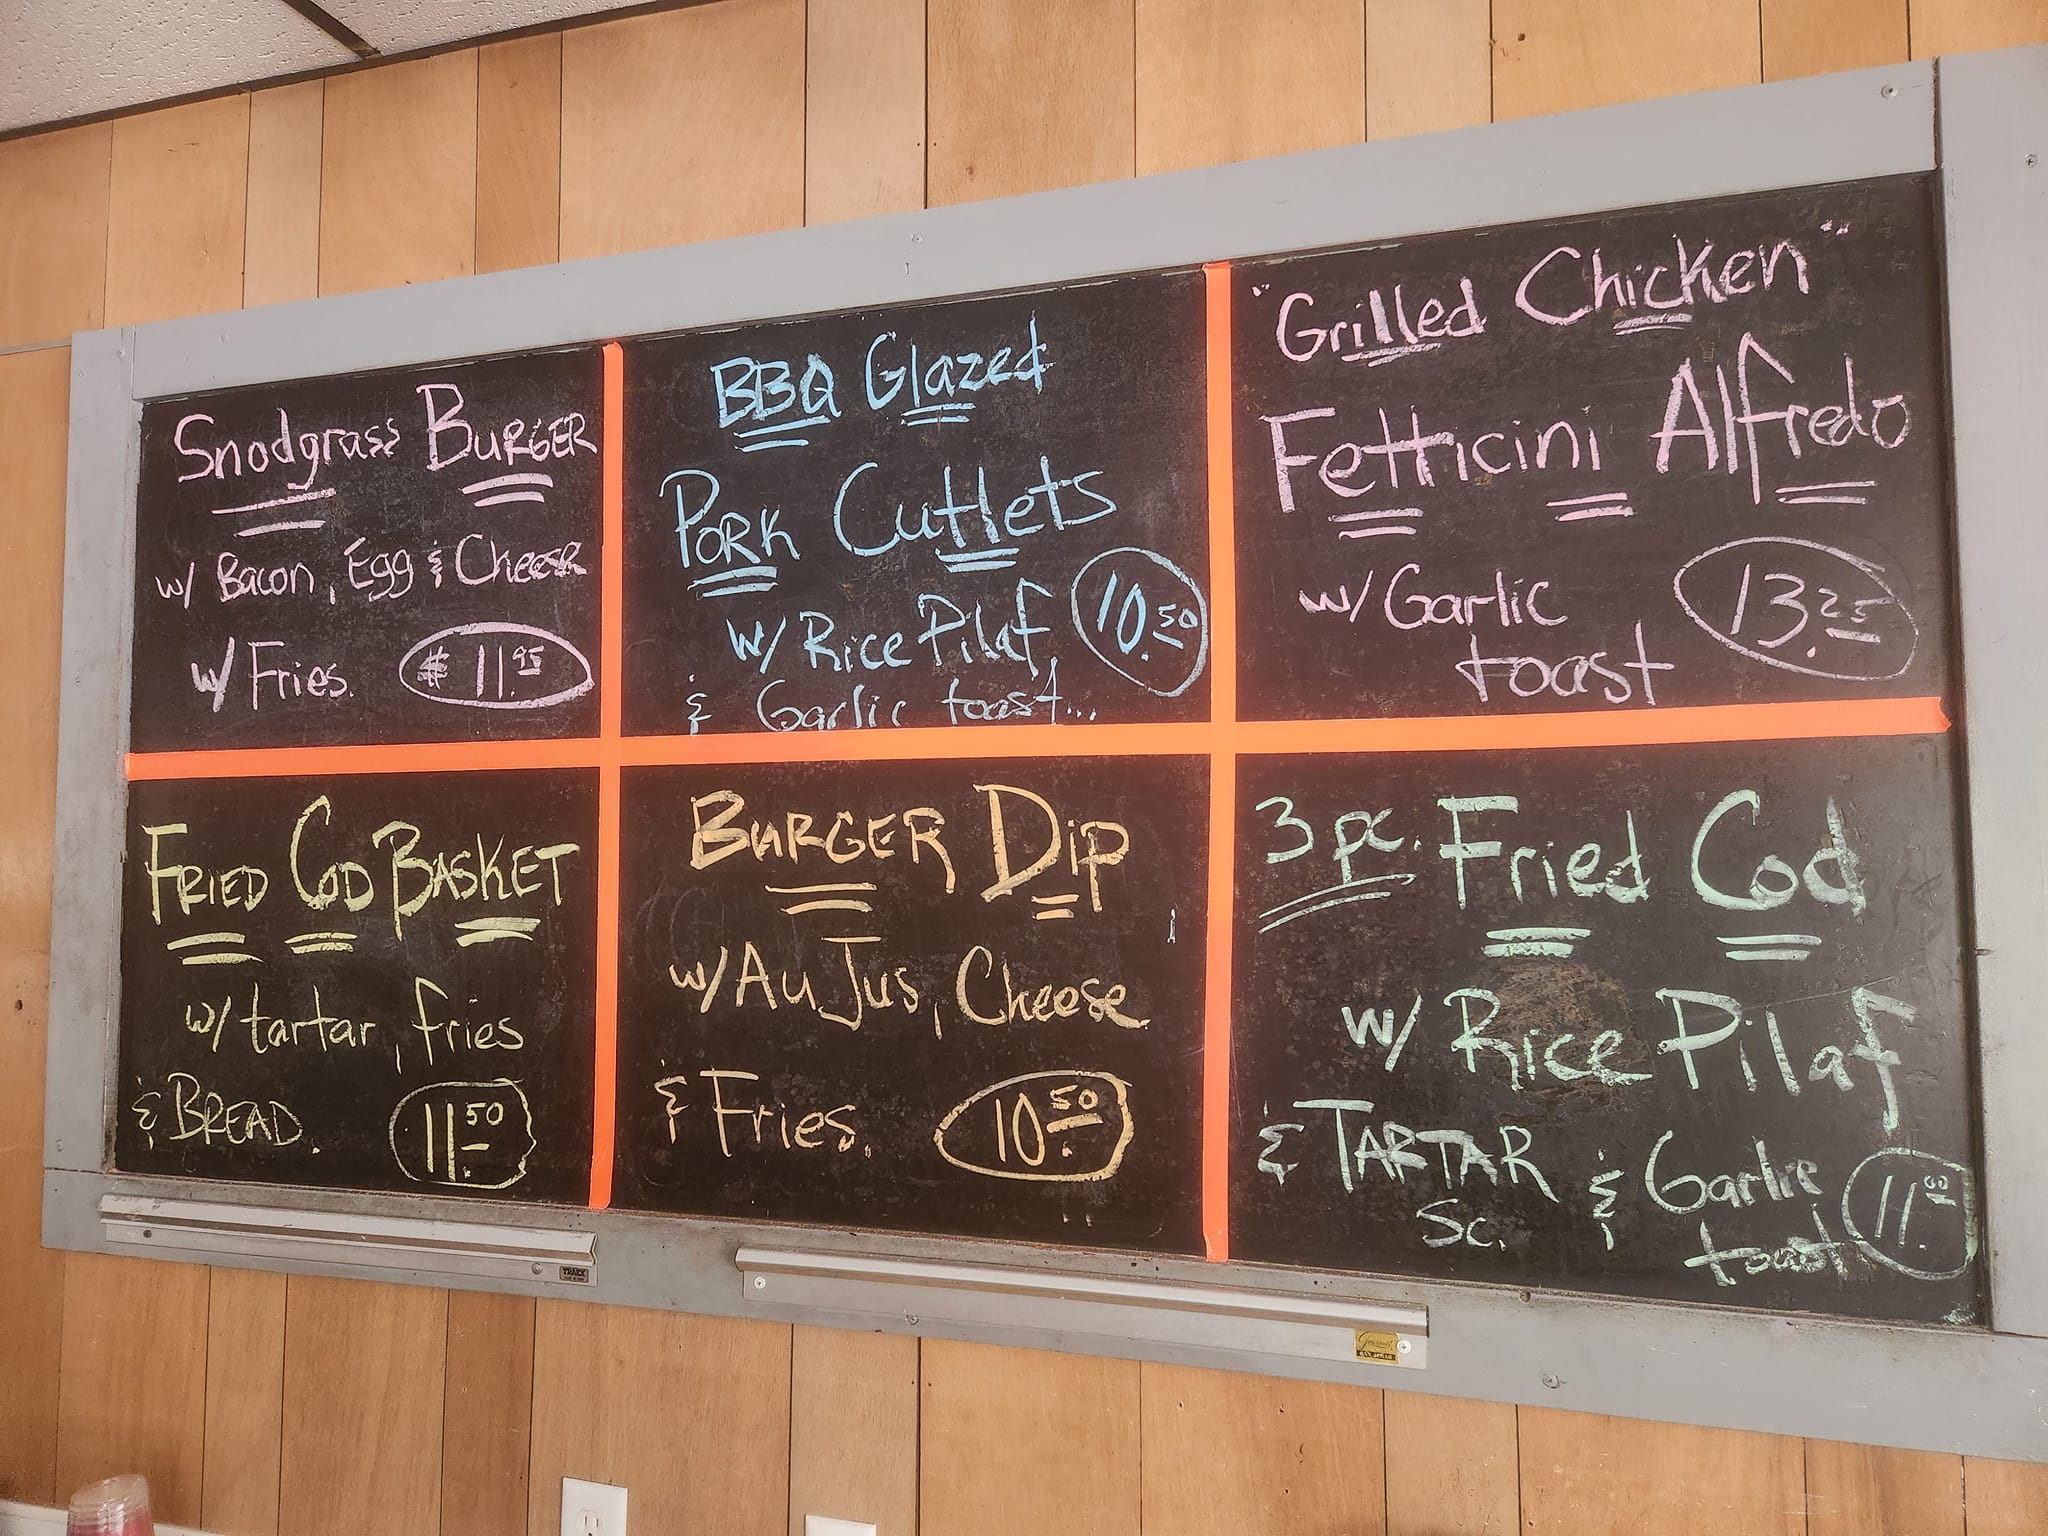 Snodgrass BURGER
w/ Bacon, Egg & Cheese
w/ Fries. $11.95
BBQ Glazed
PORK Cutlets
w/ Rice Pilaf 10.50
& Garlic toast...
"Grilled Chicken"
Fetticini Alfredo
w/ Garlic
toast 13.25
FRIED COD BASKET
w/ tartar, fries
& BREAD. 11.50
BURGER DIP
w/ Au Jus, Cheese
& Fries. 10.50
3 pc. Fried Cod
w/ Rice Pilaf
& TARTAR & Garlic
Sc. toast
TRAEX
Gourmet